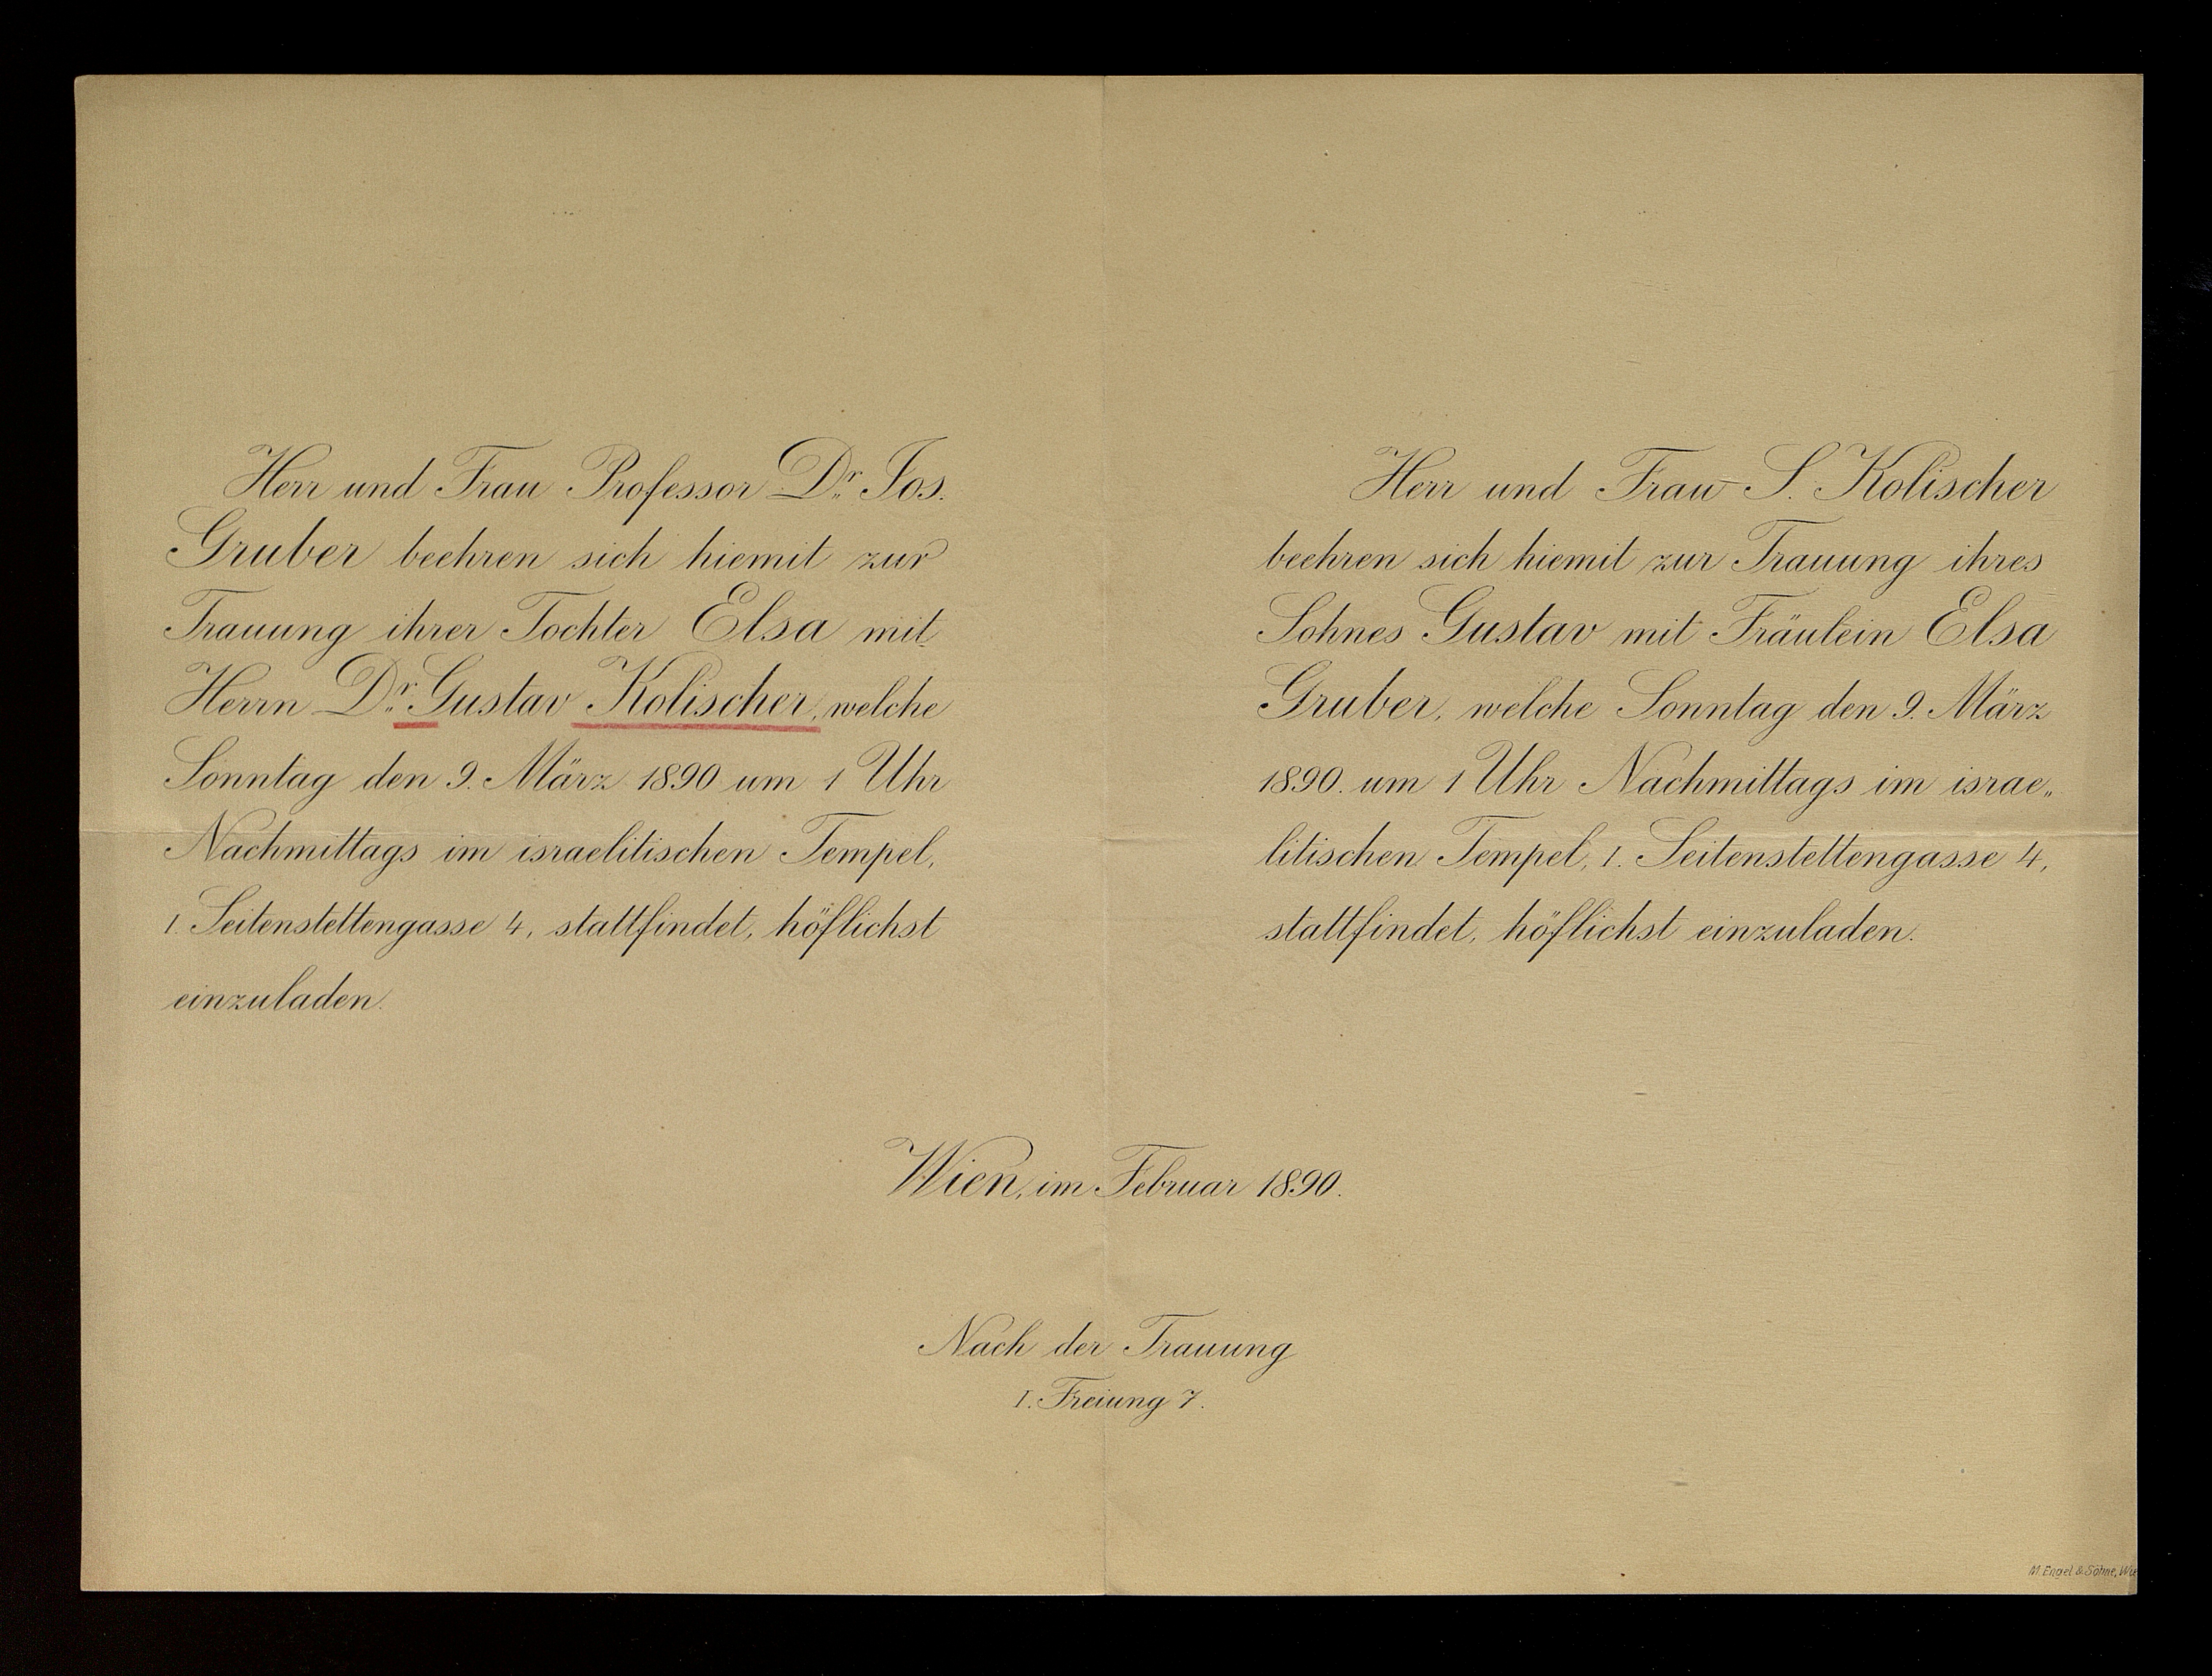 Herr und Frau Professor Dr. Jos.
Gruber beehren sich hiemit zur
Trauung ihrer Tochter Elsa mit
Herrn Dr. Gustav Kolischer, welche
Sonntag den 9. März 1890 um 1 Uhr
Nachmittags im israelitischen Tempel,
I. Seitenstettengasse 4, stattfindet, höflichst
einzuladen.
Herr und Frau S. Kolischer
beehren sich hiemit zur Trauung ihres
Sohnes Gustav mit Fräulein Elsa
Gruber, welche Sonntag den 9. März
1890. um 1 Uhr Nachmittags im israe„
litischen Tempel, I. Seitenstettengasse 4,
stattfindet, höflichst einzuladen.
Wien, im Februar 1890.
Nach der Trauung
I. Freiung 7.
M. Engel & Söhne, Wie